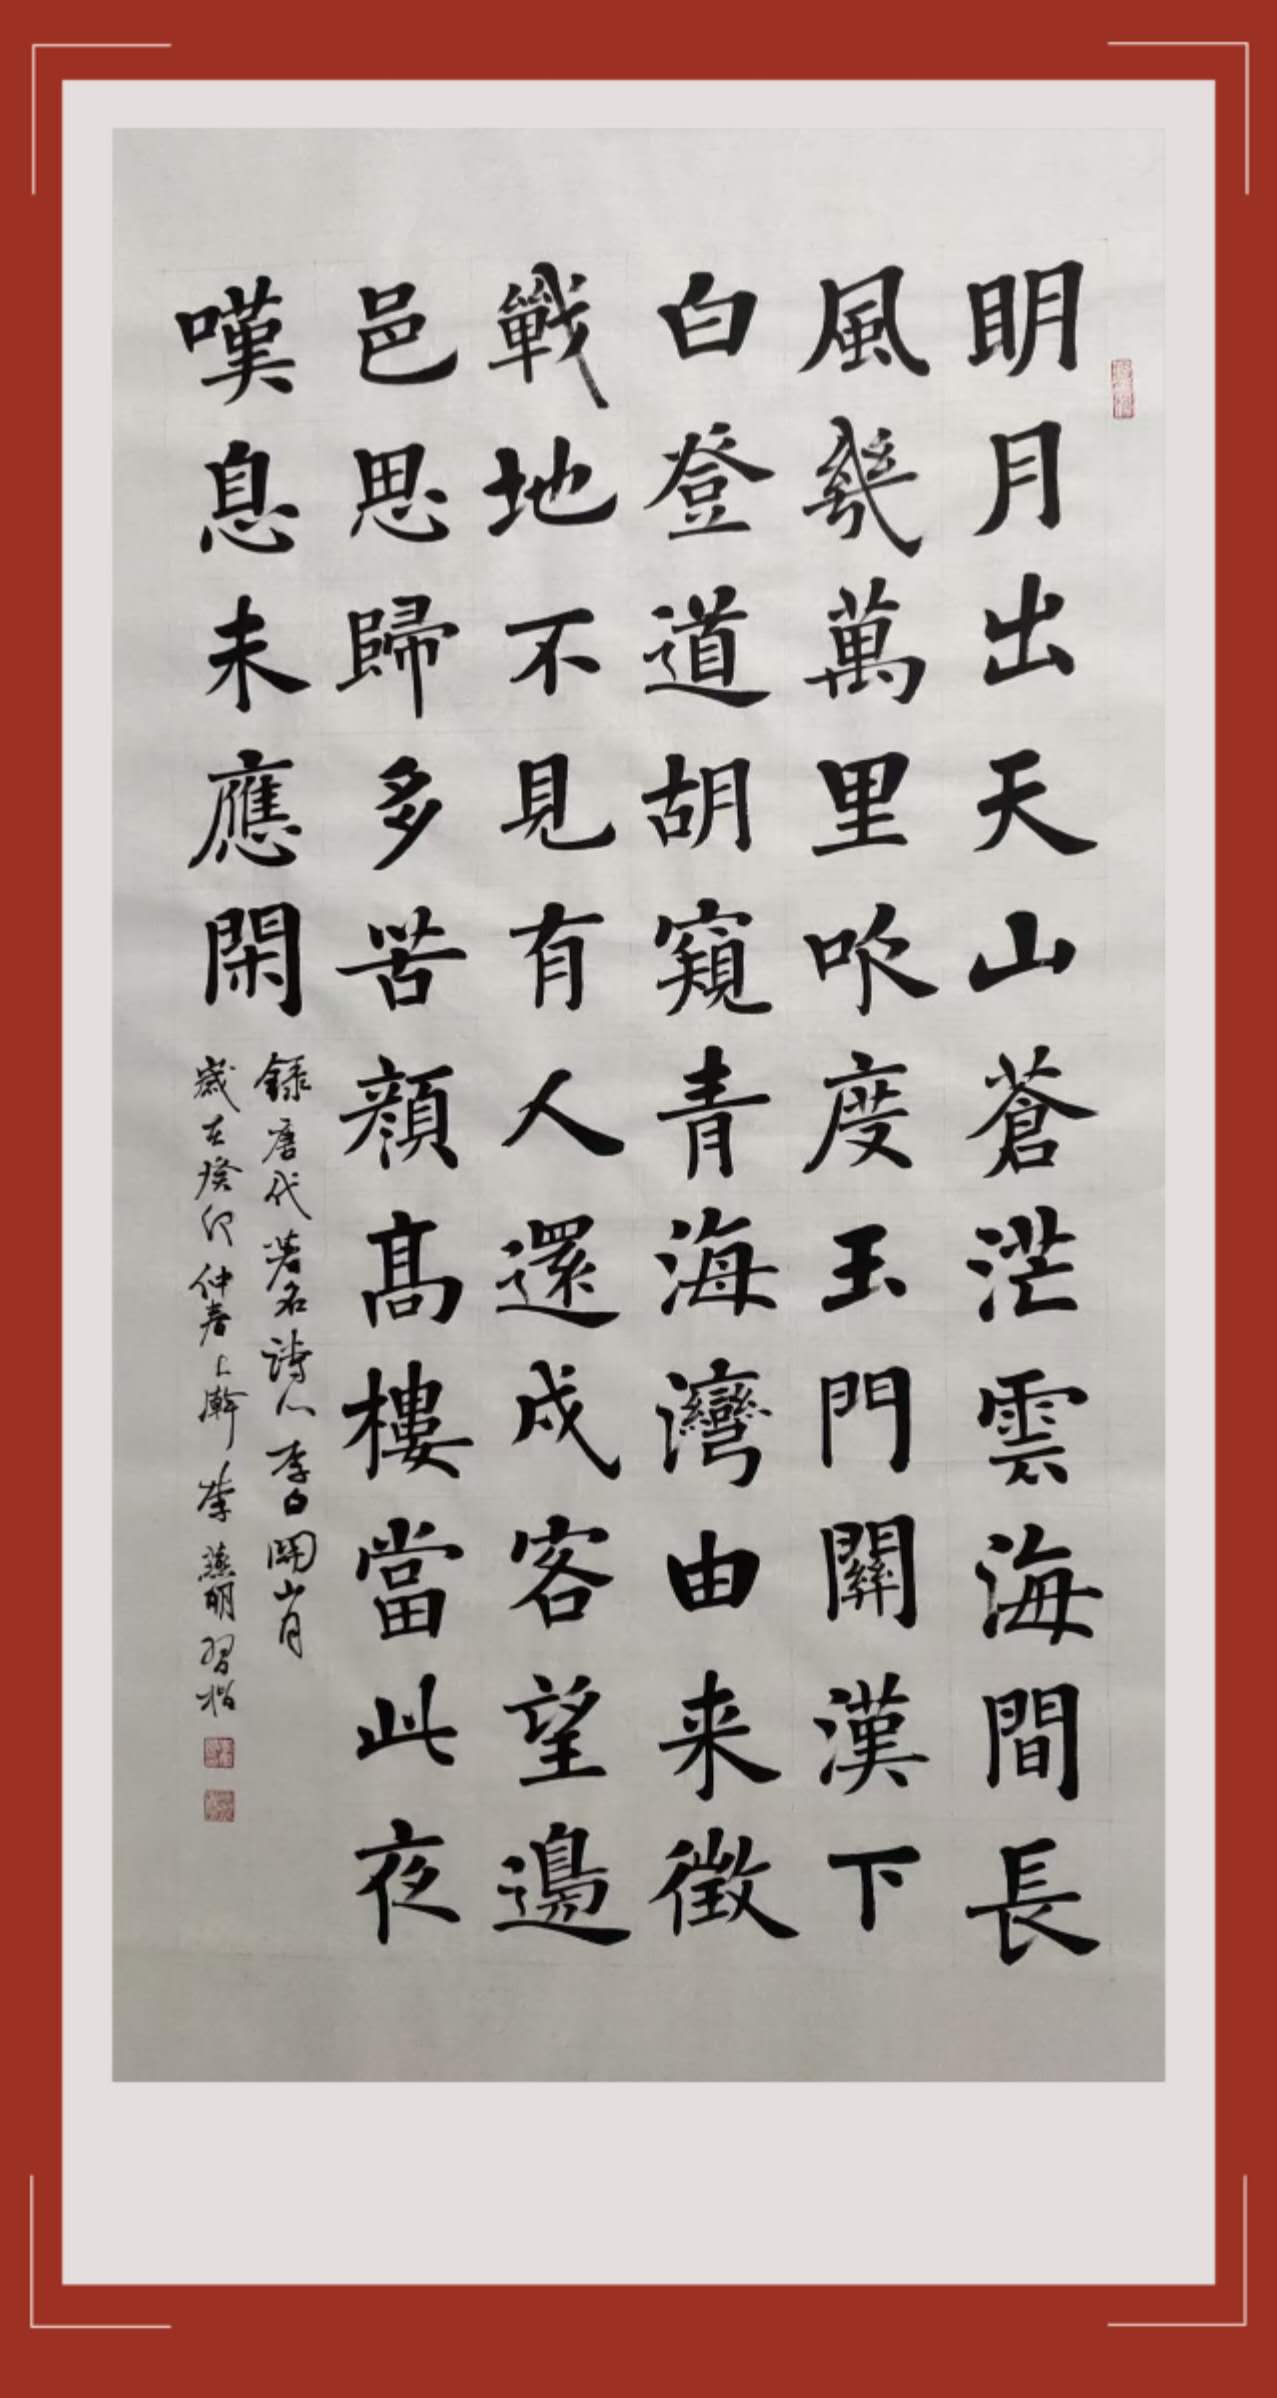 眀月出天山蒼茫雲海間長
風幾萬里吹度玉門關漢下
白登道胡窺青海灣由来徵
戰地不見有人還戍客望邊
邑思歸多苦顔髙樓當此夜
嘆息未應閑
録唐代著名詩人李白關山月
歲在癸卯仲春上澣李燕明習楷